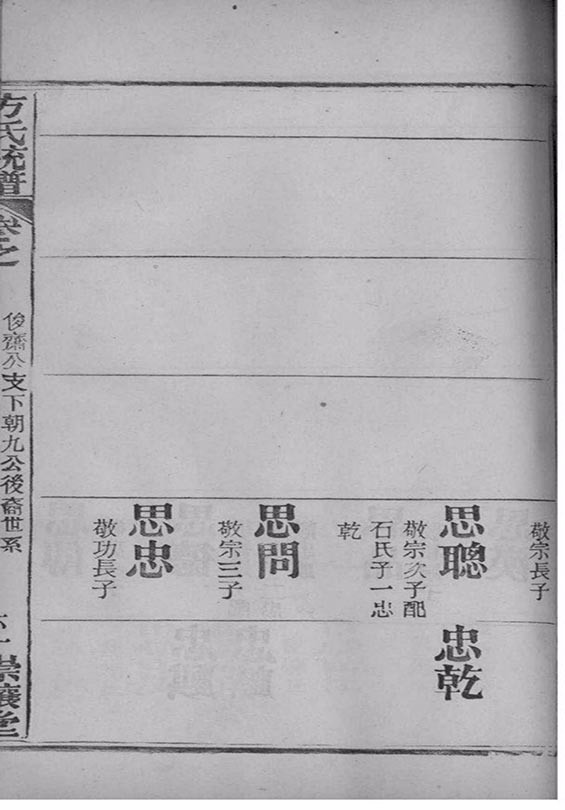 敬宗長子
思聰
敬宗次子配
石氏子一忠
乾
忠乾
思問
敬宗三子
思忠
敬功長子
方氏統譜
俊齋公支下朝九公後裔世系
崇讓堂